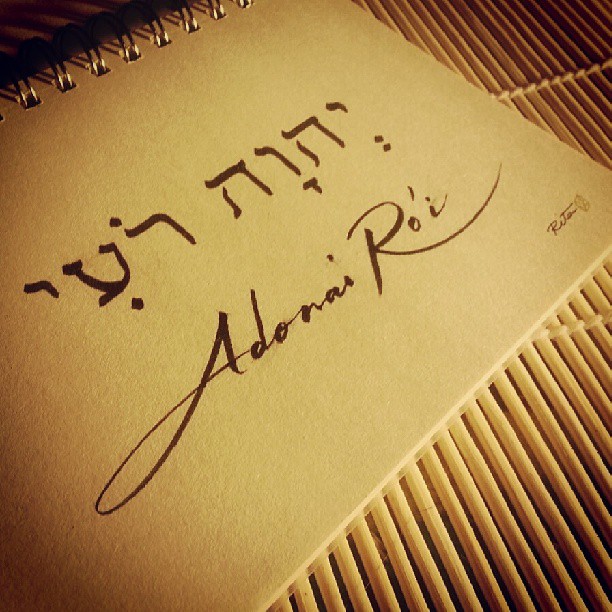 יְהוָה רֹעִי
Adonai Ró'i
Rita